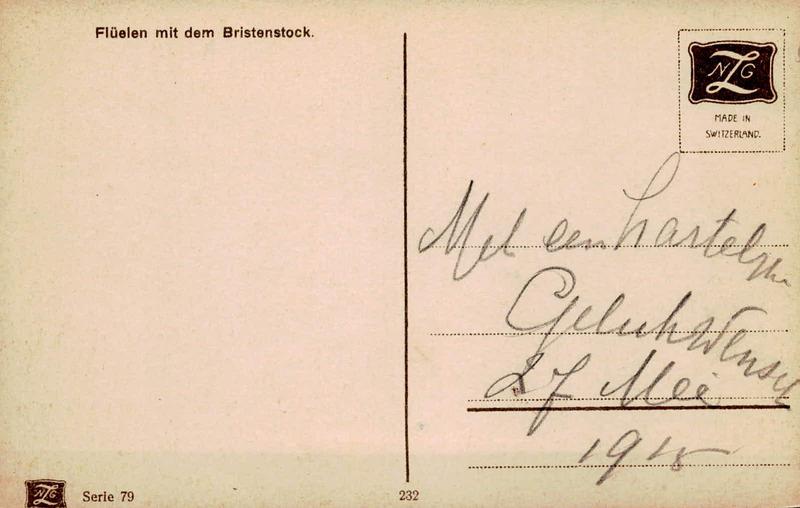 Flüelen mit dem Bristenstock.
NZG
MADE IN
SWITZERLAND.
Met een hartelijke
Gelukwensch
27 Mei
1915
NZG
Serie 79
232